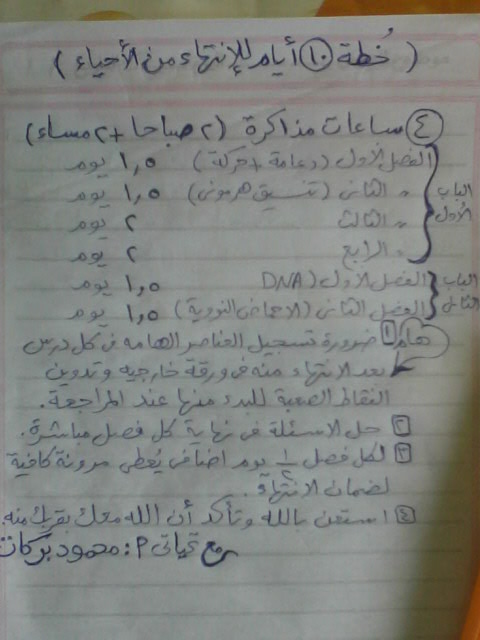 ( خُطة ١٠ أيام للإنتهاء من الأحياء )
٤ ساعات مذاكرة (٢ صباحا + ٢ مساء)
الباب الأول
الفصل الأول (دعامة + حركة) ١,٥ يوم
〃 الثانى (تنسيق هرمونى) ١,٥ يوم
〃 الثالث ٢ يوم
〃 الرابع ٢ يوم
الباب الثانى
الفصل الأول (DNA ١,٥ يوم
الفصل الثانى (الاحماض النووية) ١,٥ يوم
هام ١ ضرورة تسجيل العناصر الهامه فى كل درس
بعد الانتهاء منه فى ورقة خارجيه وتدوين
النقاط الصعبة للبدء منها عند المراجعة.
٢ حل الاسئلة فى نهاية كل فصل مباشرة.
٣ لكل فصل ١/٢ يوم اضافى يُعطى مرونة كافية
لضمان الانتهاء.
٤ استعن بالله وتأكد أن الله معك بقربك منه.
مع تحياتى P: محمود بركات